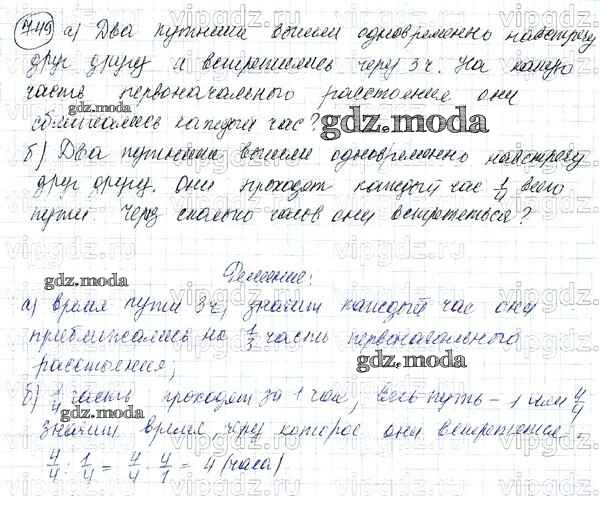 749 а) Два путника вышли одновременно навстречу
друг другу и встретились через 3 ч. На какую
часть первоначального расстояния они
сближались каждый час?
б) Два путника вышли одновременно навстречу
друг другу. Они проходят каждый час 1/4 всего
пути. Через сколько часов они встретяться?
Решение:
а) время пути 3 ч, значит каждый час они
приближались на 1/3 часть первоначального
расстояния;
б) 1/4 часть проходят за 1 час, весь путь - 1 или 4/4
значит время, через которое они встретятся -
4/4 : 1/4 = 4/4 · 4/1 = 4 (часа)
gdz.moda
gdz.moda
gdz.moda
gdz.moda